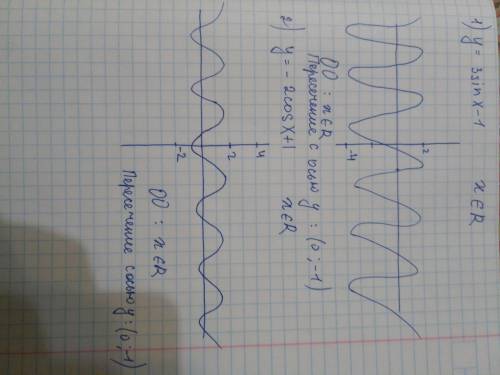 1) y = 3sinx-1 x∈R
2
-4
OO : x∈R
Пересечение с осью y : (0 ; -1)
2) y = - 2cosx+1 x∈R
4
2
-2
OO : x∈R
Пересечение с осью y : (0 ; -1)